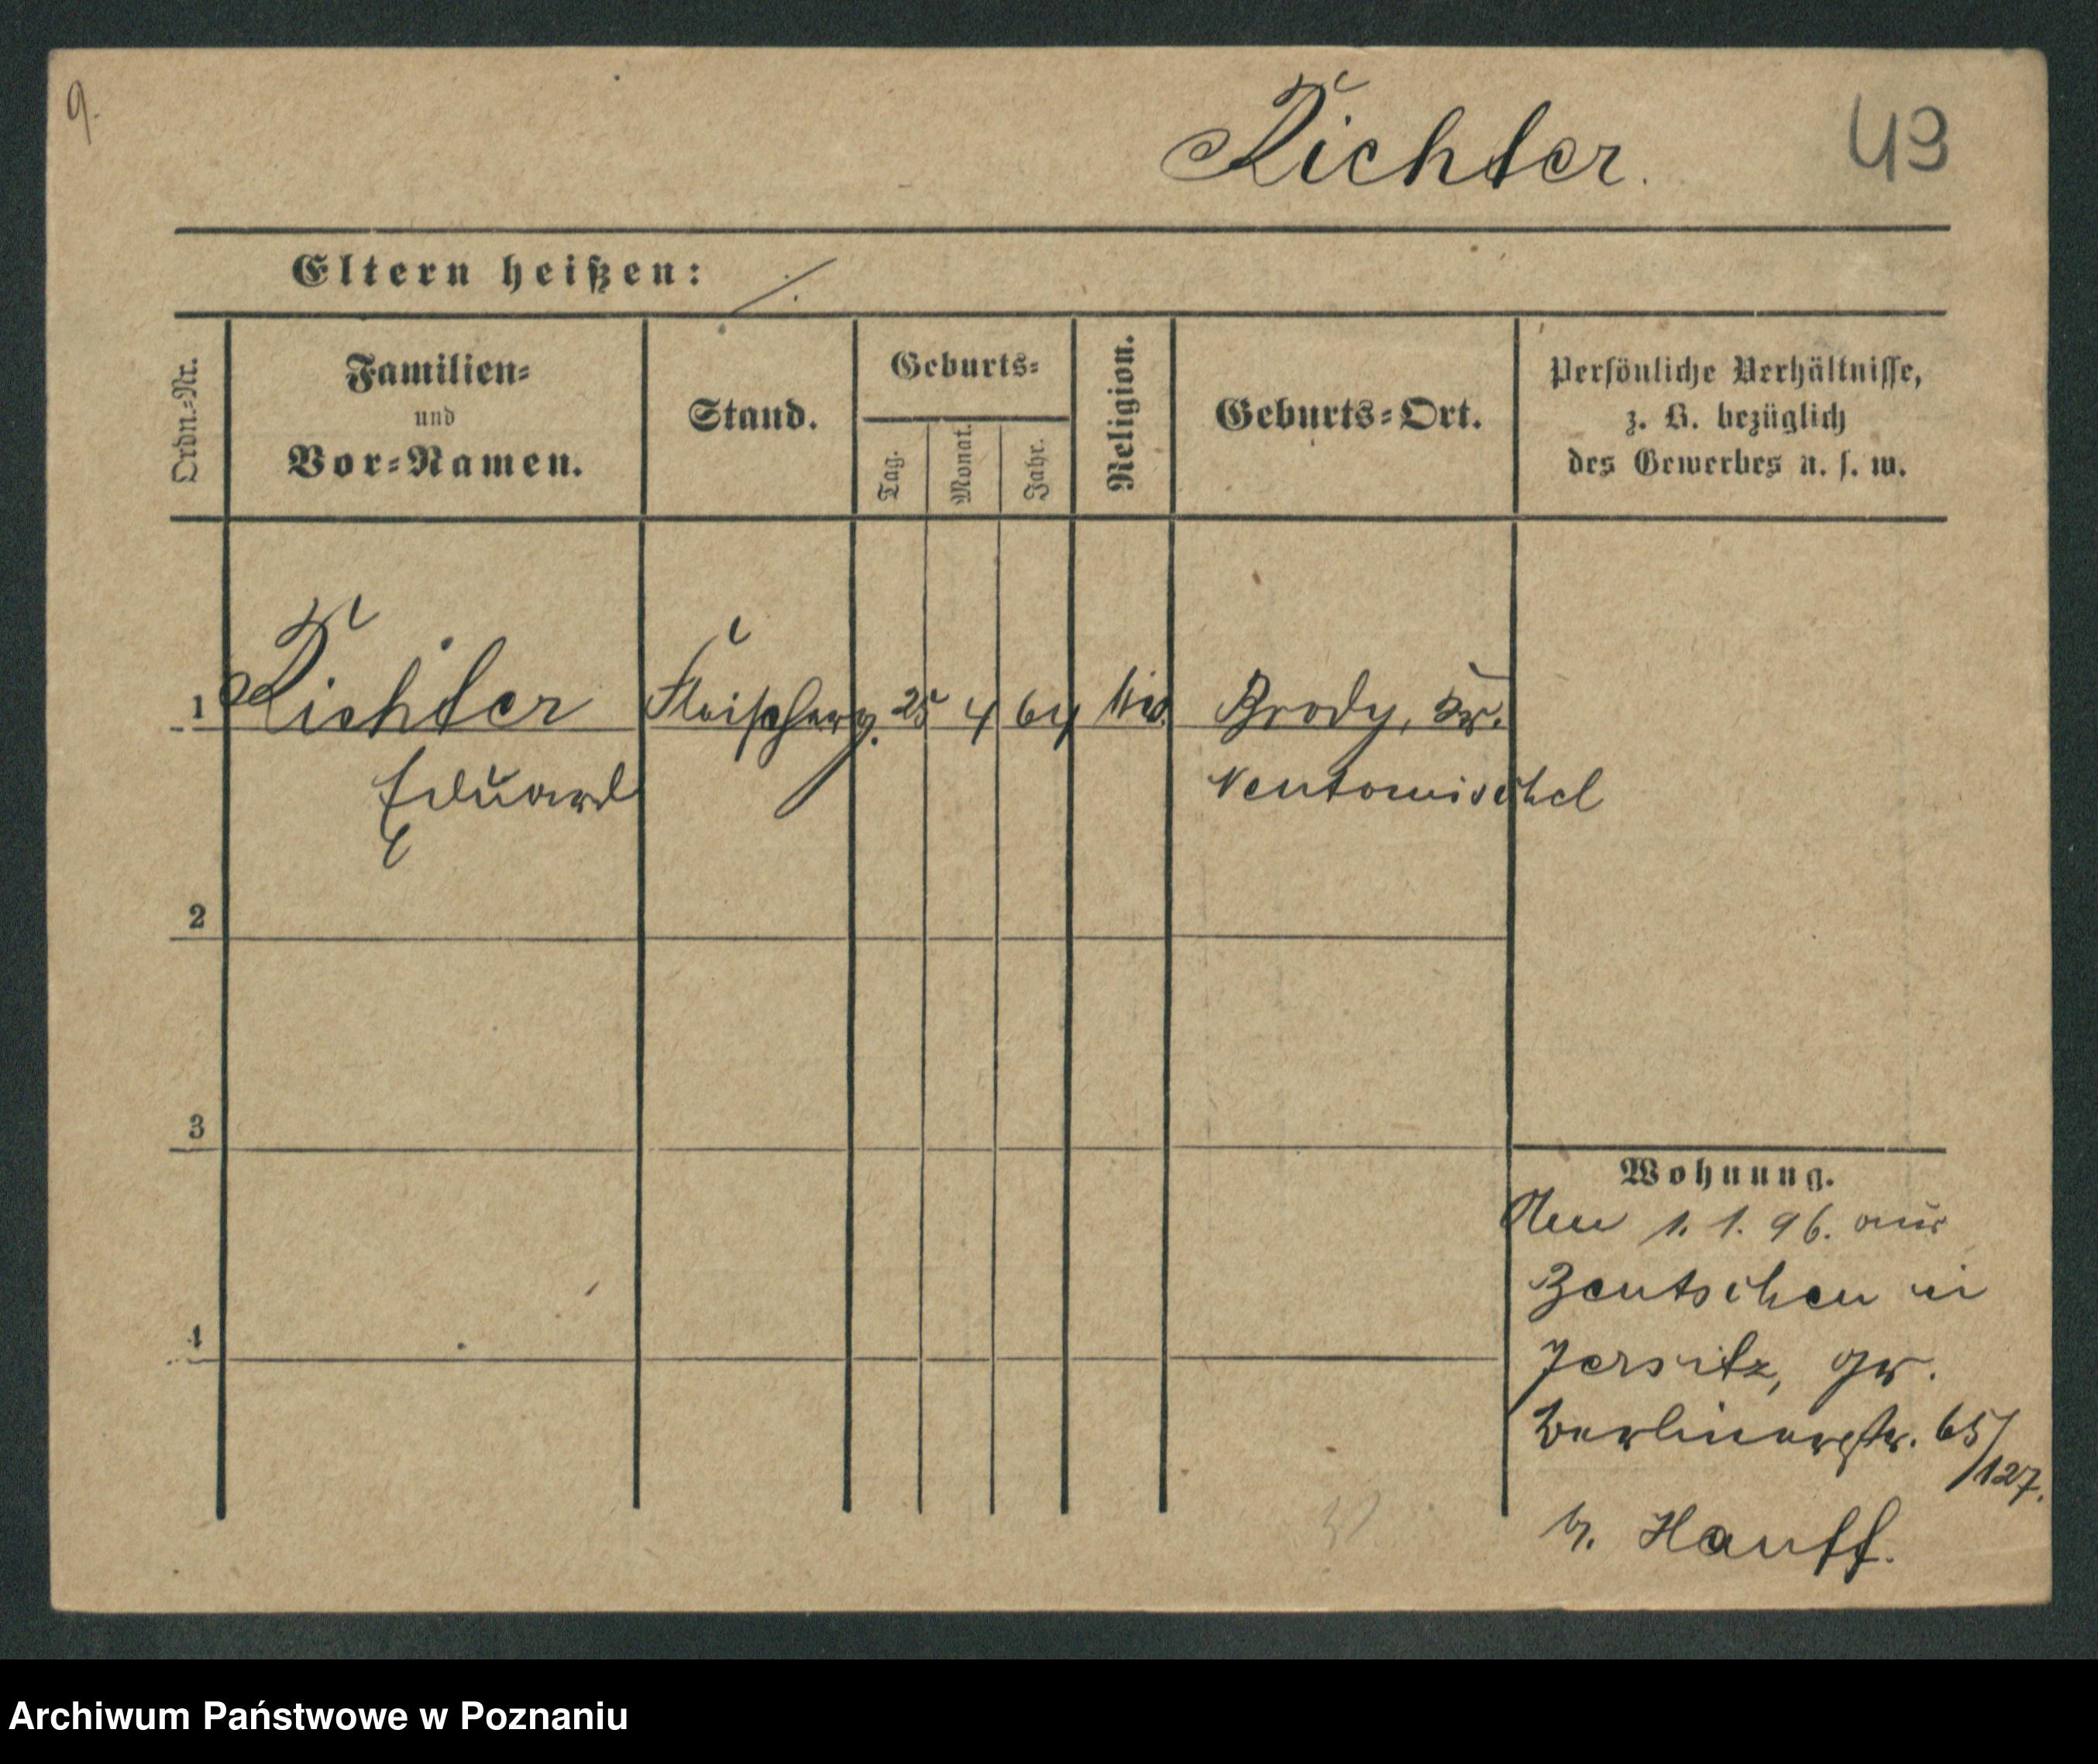 9.
Richter.
43
Eltern heißen: ./.
Ordn.-Nr.
Familien-
und
Vor-Namen.
Stand.
Geburts-
Tag.
Monat.
Jahr.
Religion.
Geburts-Ort.
Persönliche Verhältnisse,
z. B. bezüglich
des Gewerbes u. s. w.
1 Richter 25 4 64 Brody, Kr.
Eduard Neutomischel
2
3
4
Wohnung.
1. 1. 96. aus
Bentschen in
Jersitz, Gr.
Berlinerstr. 65/
127.
b. Hauff.
Archiwum Państwowe w Poznaniu